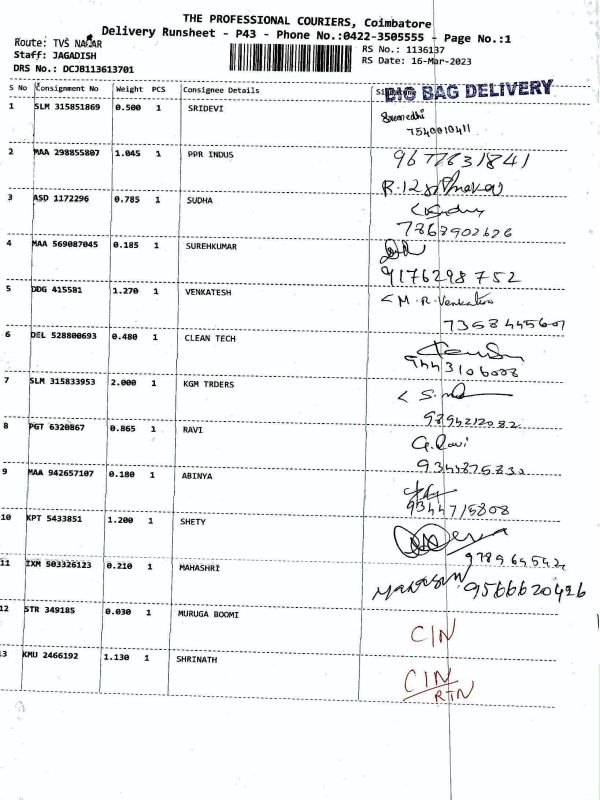 THE PROFESSIONAL COURIERS, Coimbatore
Delivery Runsheet - P43 - Phone No.:0422-3505555 - Page No.:1
Route: TVS NAGAR
RS No.: 1136137
Staff: JAGADISH
RS Date: 16-Mar-2023
DRS No.: DCJB113613701
BIG BAG DELIVERY
S No Consignment No Weight PCS Consignee Details
1 SLM 315851869 0.500 1 SRIDEVI
7540010411
2 MAA 298855807 1.045 1 PPR INDUS 9677631841
3 ASD 1172296 0.785 1 SUDHA
7868902626
4 MAA 569087045 0.185 1 SUREHKUMAR
9176298752
5 DDG 415581 1.270 1 VENKATESH M.R. Venkatesh
7358445601
6 DEL 528800693 0.480 1 CLEAN TECH
9443106008
7 SLM 315833953 2.000 1 KGM TRDERS
9894212082
8 PGT 6320867 0.865 1 RAVI G.Ravi
9344875832
9 MAA 942657107 0.180 1 ABINYA
9344715808
10 KPT 5433851 1.200 1 SHETY
978964542
11 IXM 503326123 0.210 1 MAHASHRI 9566620426
12 STR 349185 0.030 1 MURUGA BOOMI CIN
13 KMU 2466192 1.130 1 SHRINATH CIN
RTN